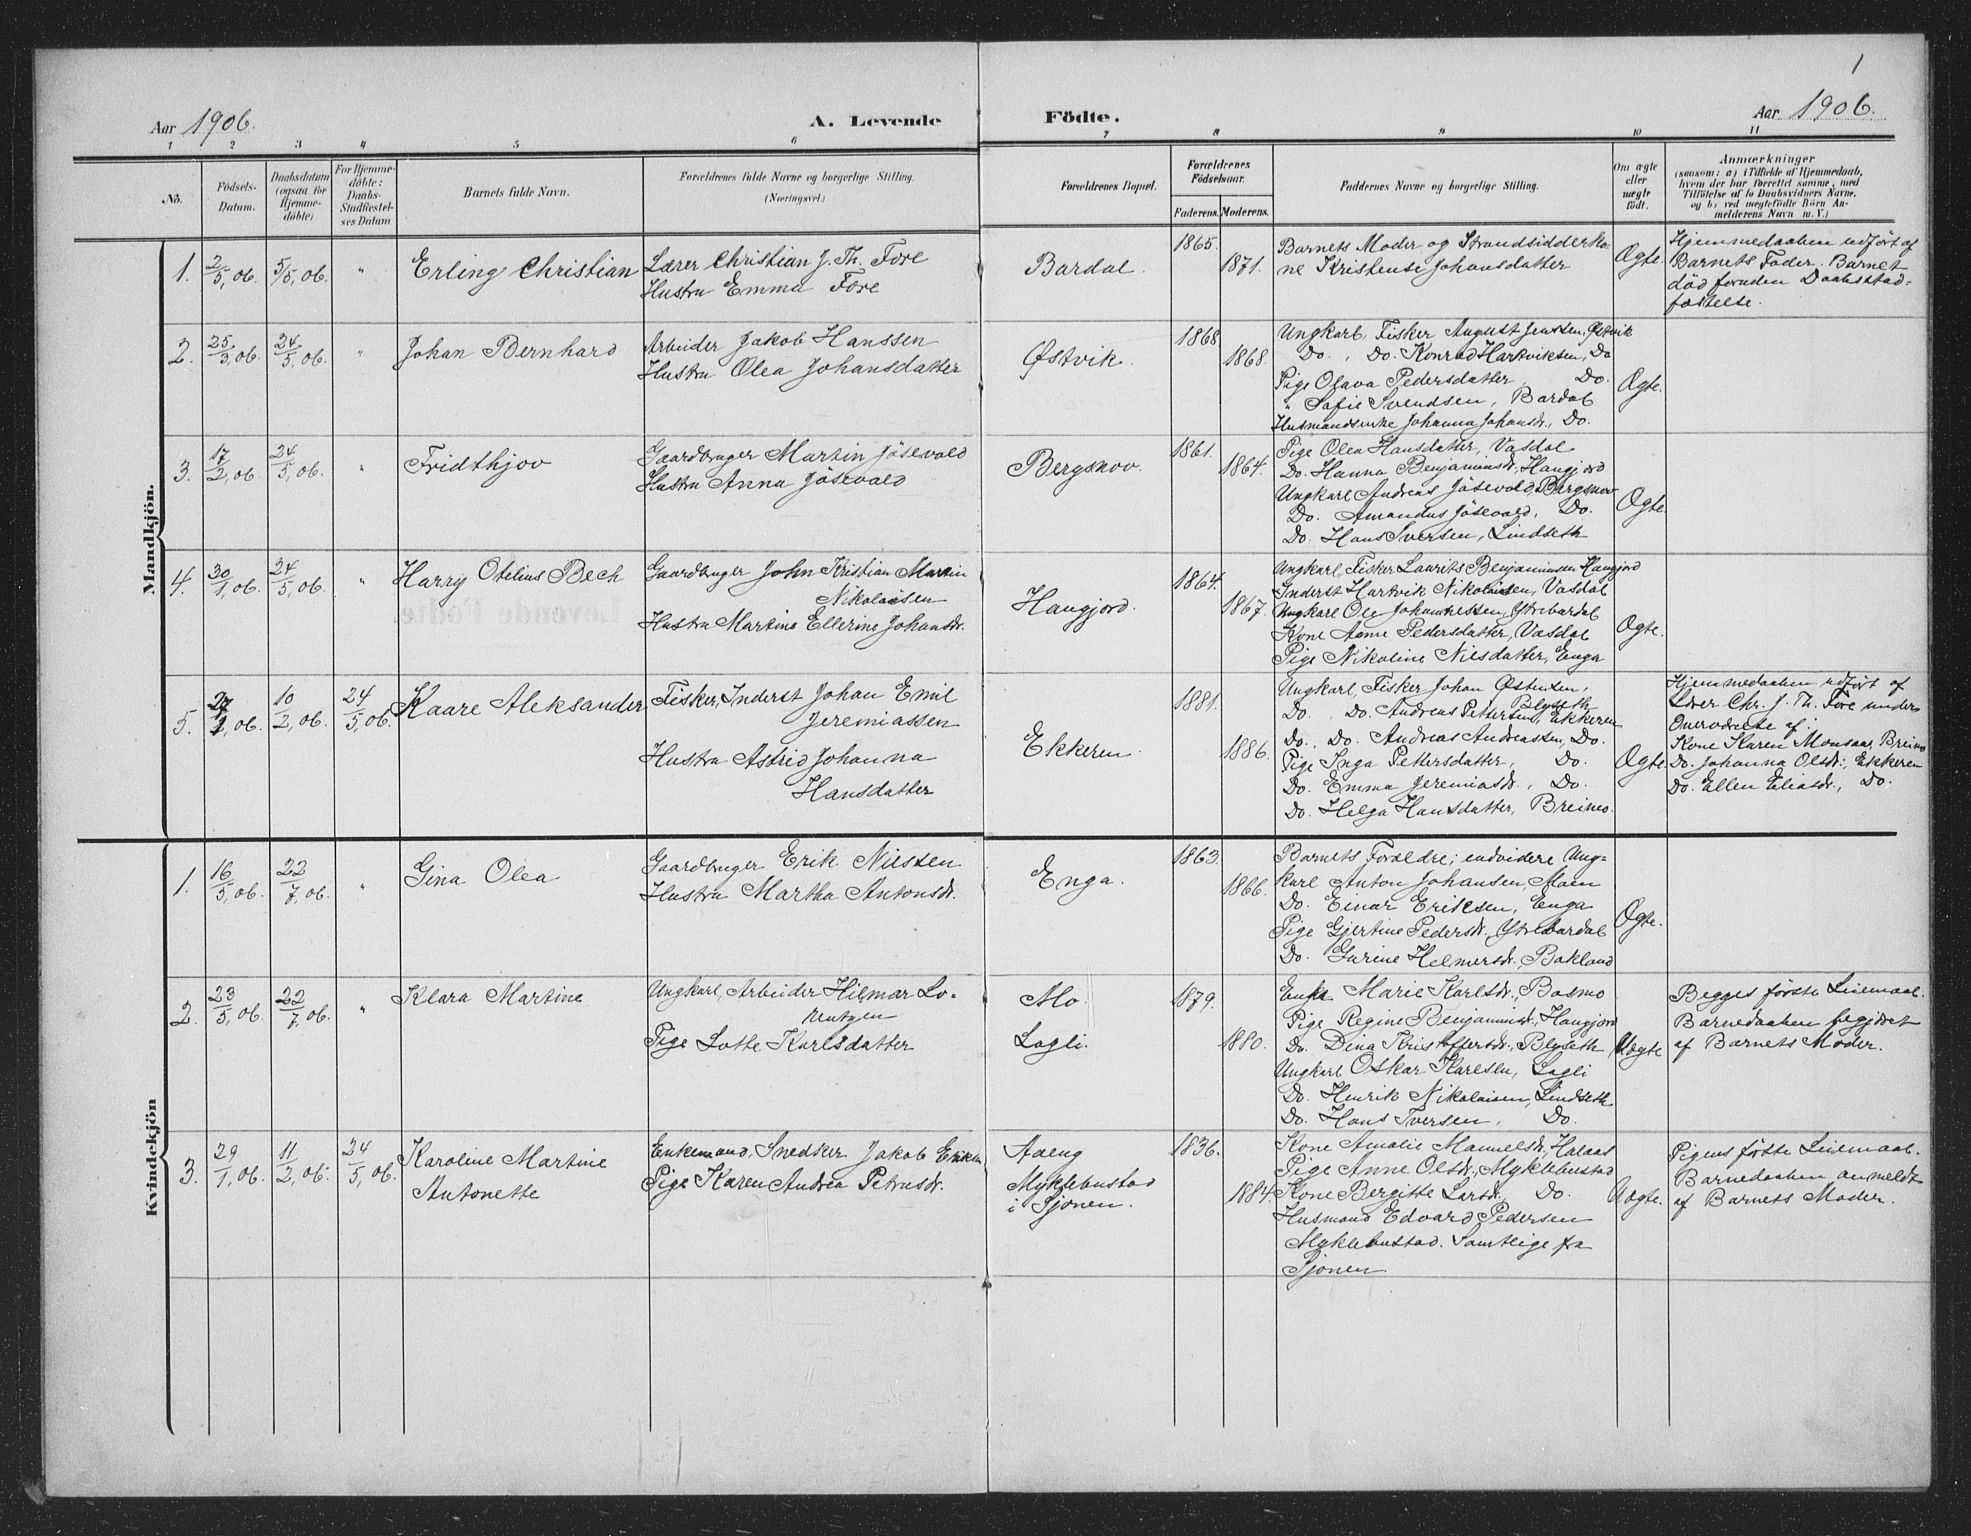 1
Aar 1906.
A. Levende Födte.
Aar 1906.
1 2 3 4 5 6 7 8 9 10 11
No.
Födsels-
Datum.
Daabsdatum
(ogsaa for
Hjemme-
döbte)
For Hjemme-
döbte:
Daabs-
Stadfæstel-
ses Datum
Barnets fulde Navn.
Forældrenes fulde Navne og borgerlige Stilling.
(Næringsvei.)
Forældrenes Bopæl.
Forældrenes
Födselsaar.
Faderens. Moderens.
Faddernes Navne og borgerlige Stilling.
Om ægte
eller
uægte
födt.
Anmærkninger
(saasom: a) i Tilfælde af Hjemmedaab,
hvem der har forrettet samme, med
Tilföielse af to Daabsvidners Navne,
og b) ved uægtefödte Börn An-
melderens Navn m. V.)
Mandkjön.
1. 2/5, 06. 5/5, 06. " Erling Christian
Lærer Christian J. Th. Føre
Hustru Emma Føre
Bardal.
1865.
1871.
Barnets Moder og Strandsidderko
ne Kristense Johansdatter
Ægte.
Hjemmedaaben udført af
Barnets Fader. Barnet
død foruden Daabsstad-
fæstelse.
2. 25/3, 06. 24/5, 06. " Johan Bernhard
Arbeider Jakob Hanssen
Hustru Olea Johansdatter
Østvik.
1868
1868.
Ungkarl, Fisker August Jenssen, Østvik
Do. , Do. Konrad Hartviksen, Do
Pige Olava Pedersdatter, Do.
" Sofie Svendsen, Bardal
Husmandsenke Johanna Johansdr., Do.
Ægte.
3. 17/2, 06. 24/5, 06. " Fridthjov
Gaardbruger Martin Jösevold
Hustru Anna Jösevold
Bergsnov
1861.
1864.
Pige Olea Hansdatter, Vasdal
Do. Hanna Benjaminsdr., Haugjord
Ungkarl Andreas Jösevold, Bergsnov
Do. Amandus Jösevold, Do.
Do. Hans Iversen, Lindseth
Ægte.
4. 30/1, 06. 24/5, 06. " Harry Otelius Bech
Gaardbruger John Kristian Martin
Nikolaisen
Hustru Martine Ellerine Johansdr.
Haugjord.
1864.
1867.
Ungkarl, Fisker Laurits Benjaminsen Haugjord
Inderst Hartvik Nikolaisen, Vasdal
Ungkarl Ole Johannessen, Ytrebardal
Kone Anne Pedersdatter, Vasdal
Pige Nikoline Nilsdatter, Enga
Ægte.
5. 27/1, 06. 10/2, 06. 24/5, 06. Kaare Aleksander
Fisker, Inderst Johan Emil
Jeremiassen
Hustru Astrid Johanna
Hansdatter
Ekkeren.
1881.
1886.
Ungkarl, Fisker Johan Østensen,
Blyseth
Do. , Do. Andreas Pettersen, Ekkeren
Do. , Do. Andreas Andreassen, Do.
Pige Inga Pettersdatter, Do.
Do. Emma Jeremiasdr., Do.
Do. Helga Hansdatter, Breimo.
Ægte.
Hjemmedaaben udført af
Lærer Chr. J. Th. Føre under
Overværelse af
Kone Karen Monsaas, Breimo
Do. Johanna Olsdr., Ekkeren
Do. Ellen Eliasdr., Do.
Kvindekjön
1. 16/5, 06. 22/7, 06. " Gina Olea
Gaardbruger Erik Nilssen
Hustru Martha Antonsdr.
Enga.
1863.
1866.
Barnets Forældre; endvidere Ung-
karl Anton Johansen, Moen
Do. Einar Eriksen, Enga
Pige Gjertine Pedersdr., Ytrebardal
Do. Gurine Helmersdr., Bakland
Ægte.
2. 23/5, 06. 22/7, 06. " Klara Martine
Ungkarl, Arbeider Hilmar Lo-
rentzen
Pige Lotte Karlsdatter
Mo.
Lagli.
1879.
1880.
Enke Marie Karlsdr., Basmo
Pige Regine Benjaminsdr., Haugjord
Do. Dina Kristoffersdr., Blyseth
Ungkarl Oskar Karlsen, Lagli
Do. Henrik Nikolaisen, Lindseth
Do. Hans Iversen, Do.
Uægte
Begges første Leiemaal.
Barnedaaben begjæret
af Barnets Moder.
3. 29/1, 06. 11/2, 06. 24/5, 06. Karoline Martine
Antonette
Enkemand, Snedker Jakob Eriksen
Pige Karen Andrea Petrusdr.
Aaeng
Myklebustad
i Sjonen.
1836.
1884.
Kone Amalie Manuelsdr., Halaas
Pige Anne Olsdr., Myklebustad
Kone Bergitte Larsdr., Do.
Husmand Edvard Pedersen
Myklebustad. Samtlige fra
Sjonen.
Uægte.
Pigens første Leiemaal.
Barnedaaben anmeldt
af Barnets Moder.